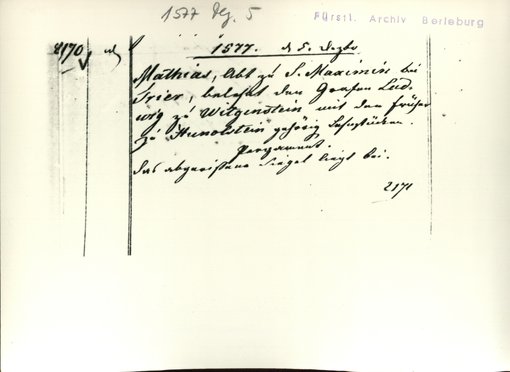 1577 Dez. 5
Fürstl. Archiv Berleburg
2170
1577. d 5. Dezbr.
Mathias, Abt zu S. Maximin bei
Trier, belehnt den Grafen Lud-
wig zu Witgenstein mit den früher
zu Hunolstein gehörig Lehnstücken.
Pergament.
Das abgerissene Siegel liegt bei.
2171